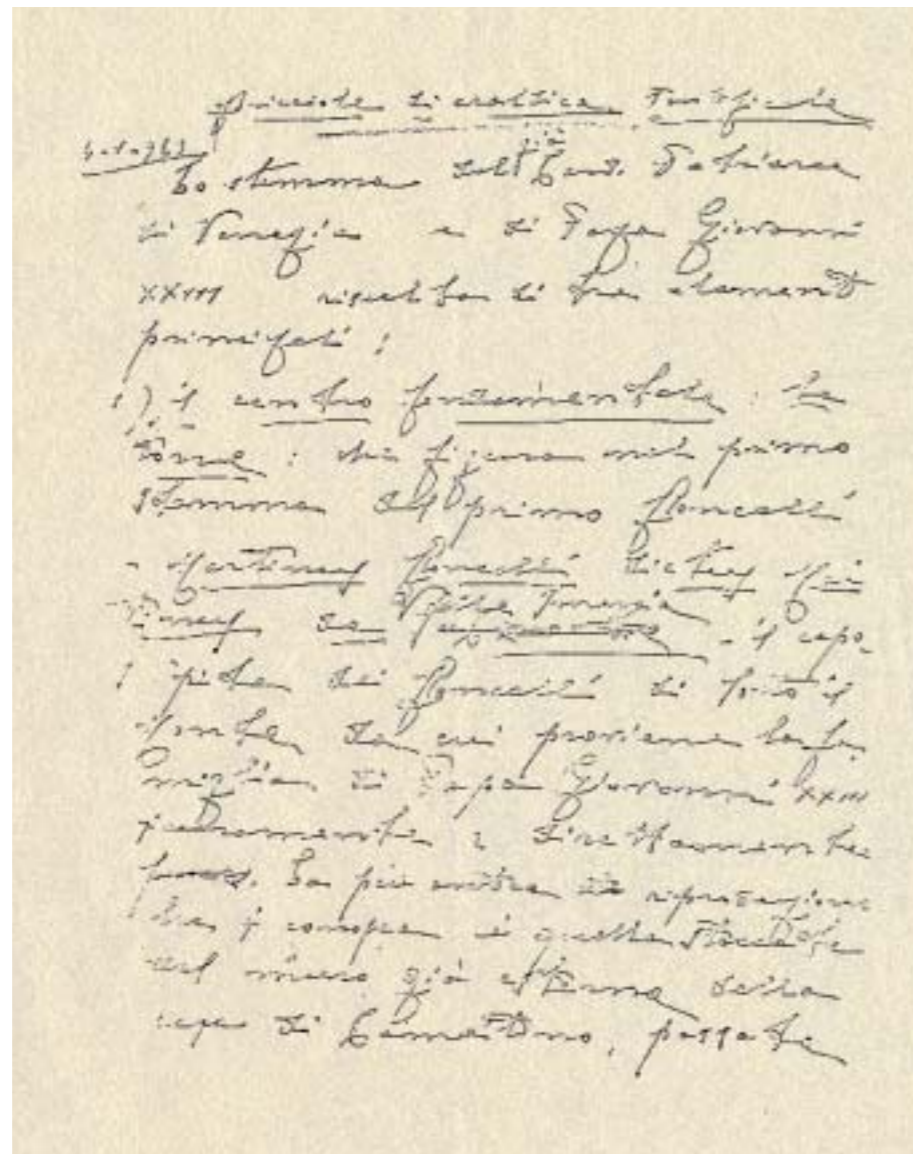 Briciole di araldica Pontificale
Lo stemma del già Card. Patriarca
di Venezia e di Papa Giovanni
XXIII risulta di tre elementi
principali:
1) il centro fondamentale: la
torre: che figura nel primo
stemma del primo Roncalli
- Martinus Roncalli dictus
da Valle Imania - il capo-
stipite dei Roncalli di Sotto il
Monte, da cui proviene la fa
miglia di Papa Giovanni XXIII
direttamente
La più antica riproduzione
che si conosca è quella
sul muro già esterno della
casa di Camaitino, passata